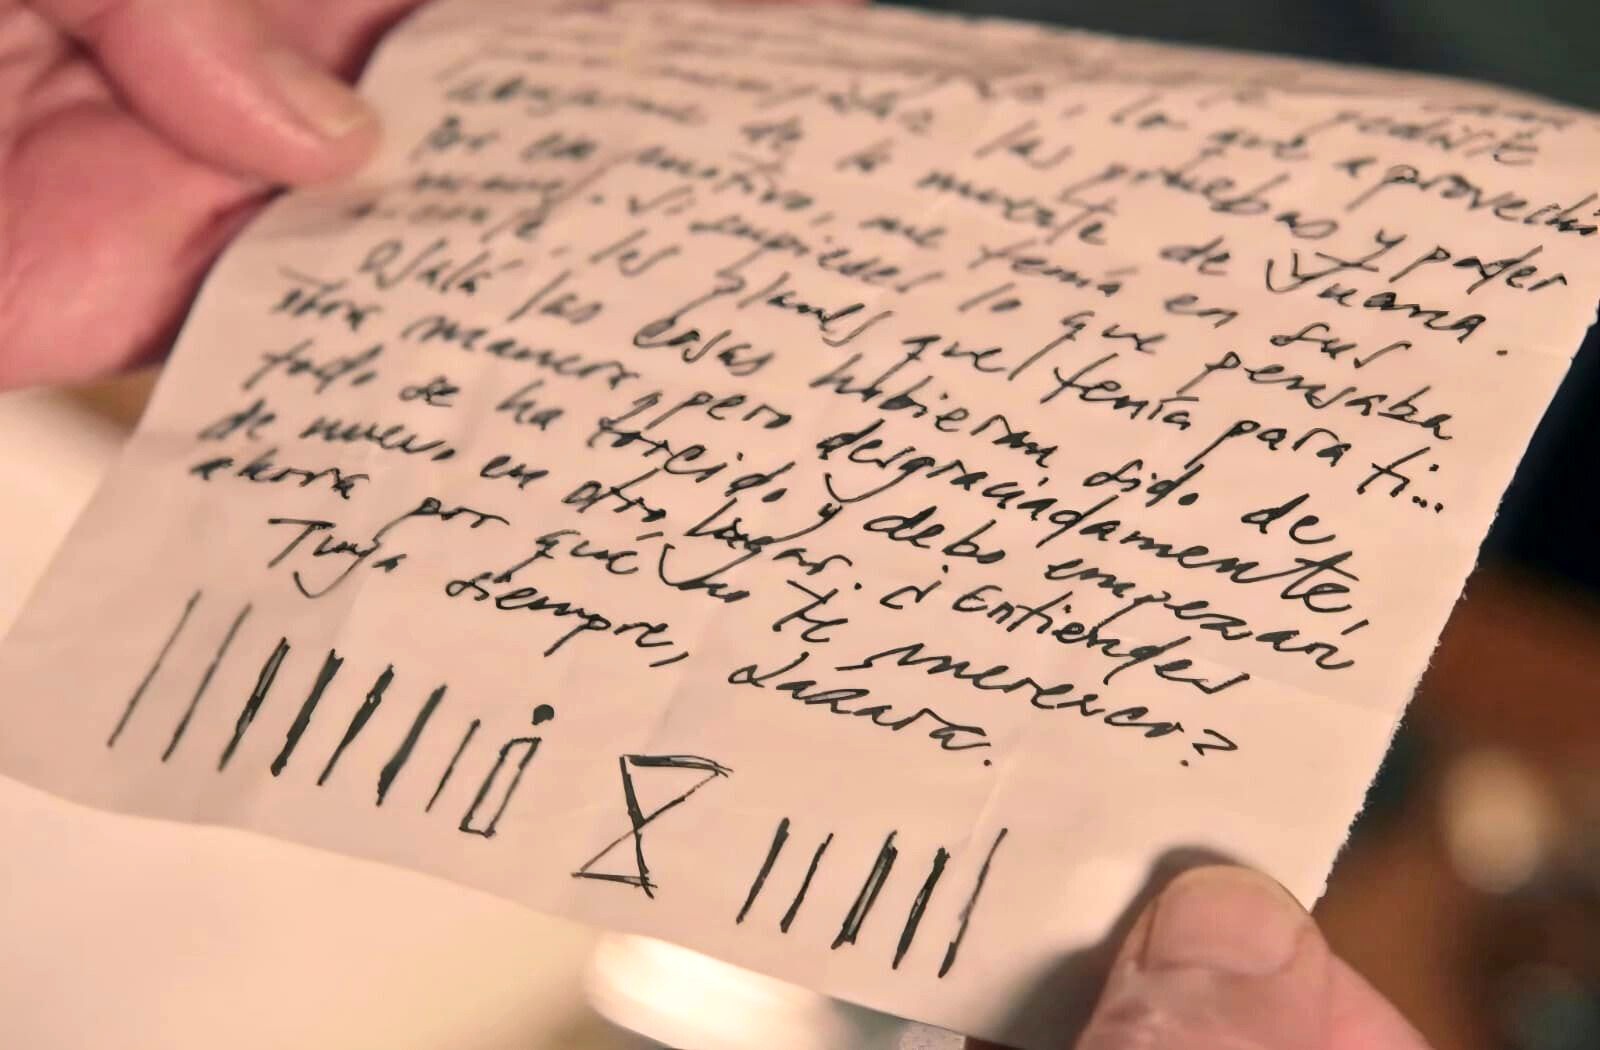 pediste
lo que aproveché
las pruebas y poder
de la muerte de Juana.
Por ese motivo, me tenía en sus
manos. Si supieses lo que pensaba
los planes que tenía para ti...
Ojalá las cosas hubieran sido de
otra manera, pero desgraciadamente,
todo se ha torcido y debo empezar
de nuevo, en otro lugar. ¿Entiendes
ahora por qué no te merezco?
Tuya siempre, Lazara.